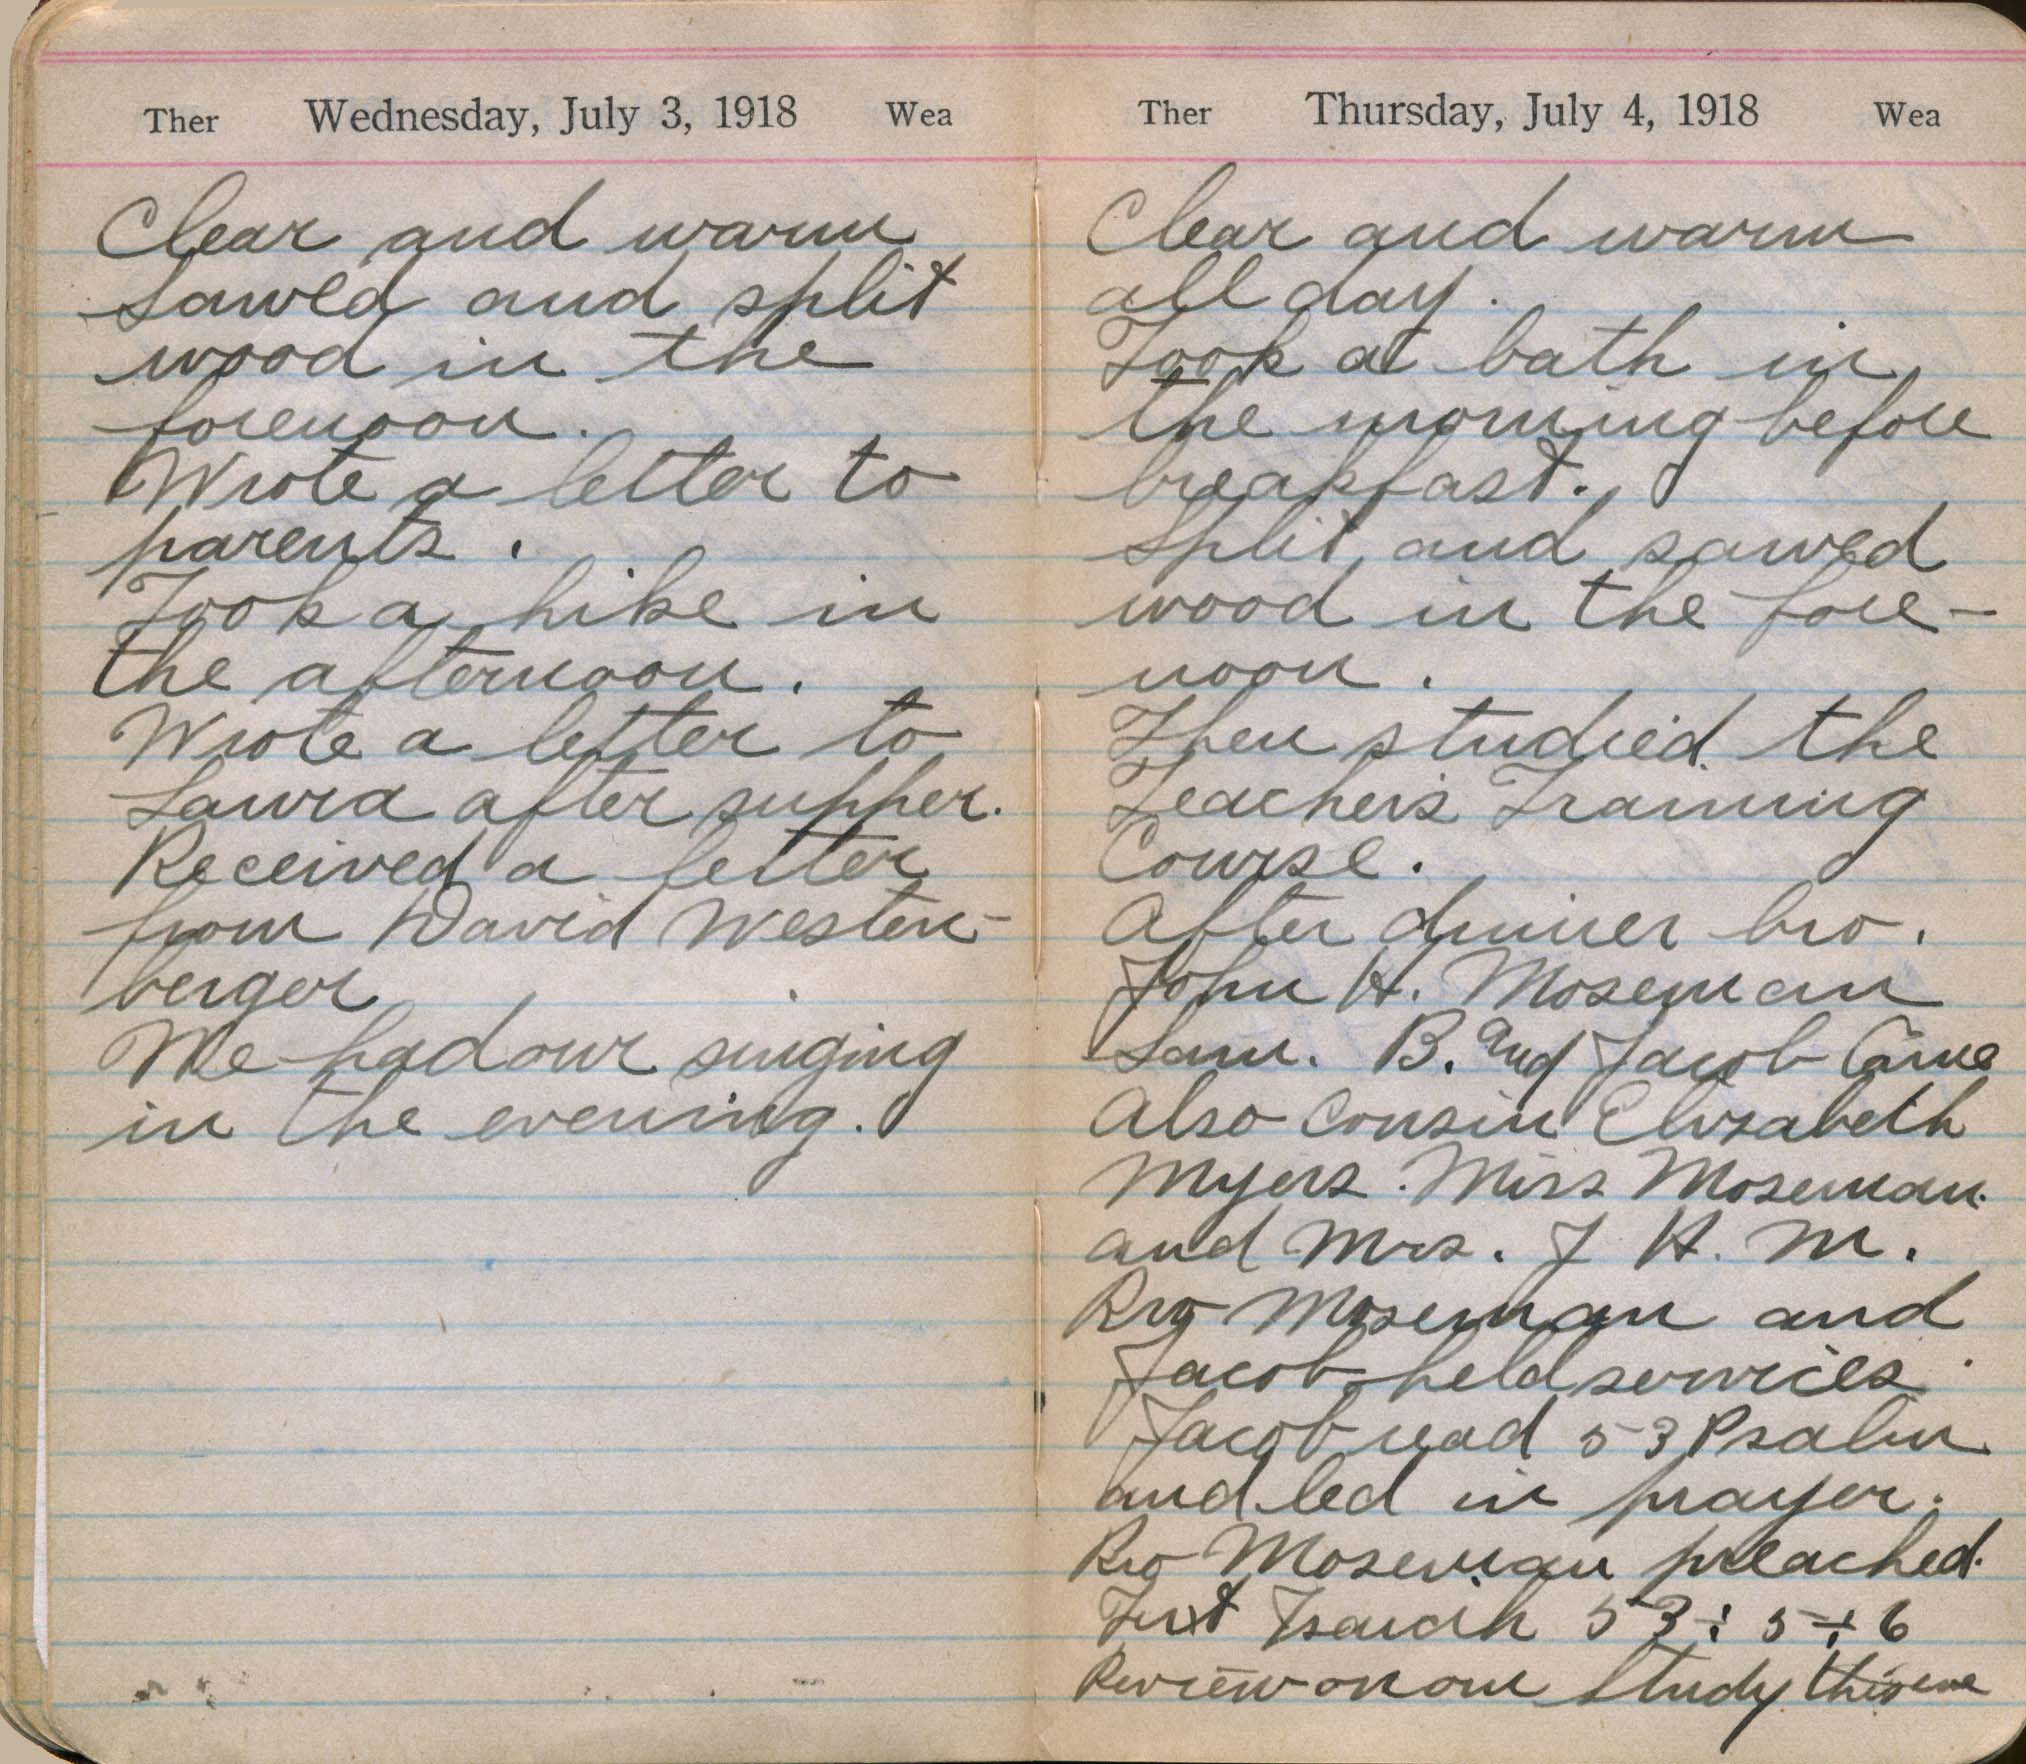 Ther Wednesday, July 3, 1918 Wea
Clear and warm
Sawed and split
wood in the
forenoon.
Wrote a letter to
parents.
Took a hike in
the afternoon.
Wrote a letter to
Laura after supper.
Received a letter
from David Westen-
berger
We had our singing
in the evening.
Ther Thursday, July 4, 1918 Wea
Clear and warm
all day.
Took a bath in
the morning before
breakfast.
Split and sawed
wood in the fore-
noon.
Then studied the
Teachers Training
Course.
After dinner bro.
John H. Moseman
Sam. B. and Jacob Came
Also Cousin Elizabeth
Myers. Miss Moseman.
and Mrs. J H. M.
Bro Moseman and
Jacob held services.
Jacob read 53 Psalm
and led in prayer.
Bro Moseman preached.
Text Isaiah 53:5+6
Review on our Study this eve